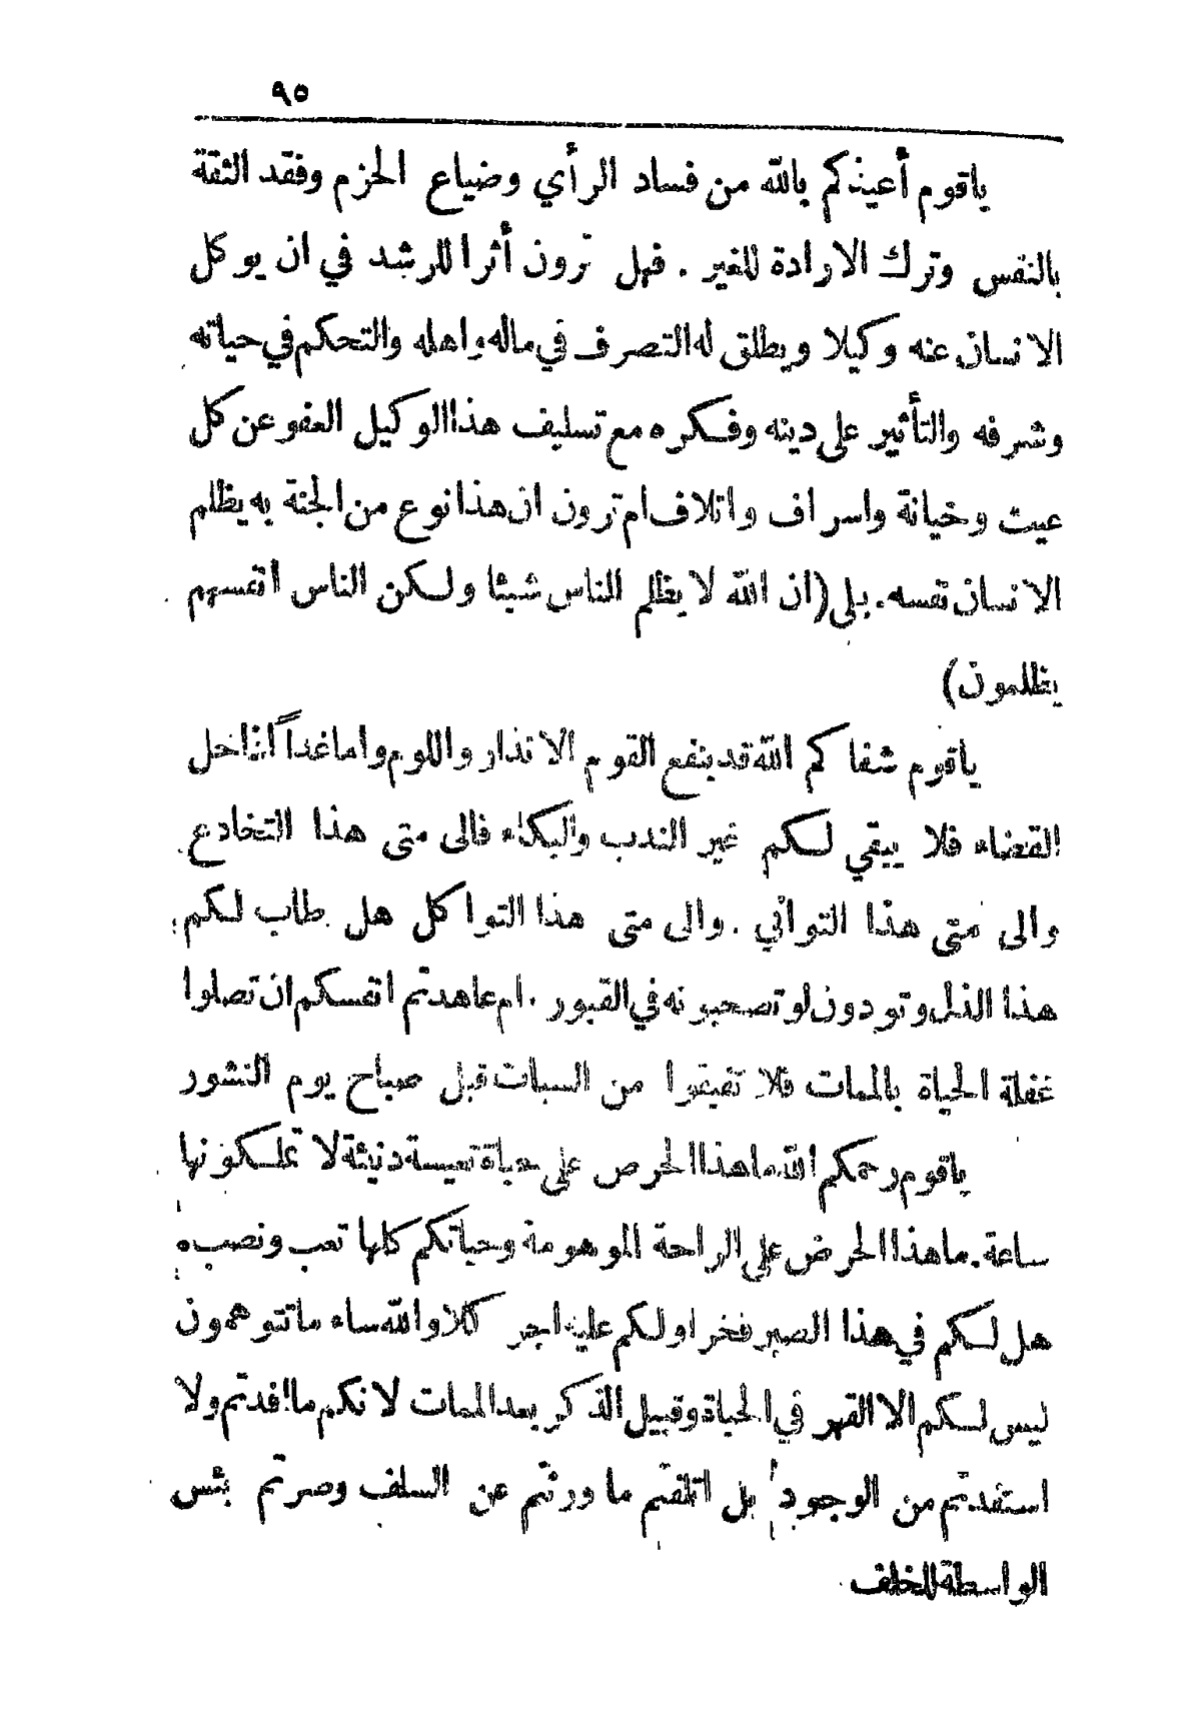 ٩٥
ياقوم أعيذكم بالله من فساد الرأي وضياع الحزم وفقد الثقة
بالنفس وترك الارادة للغير . فهل ترون أثرا للرشد في ان يوكل
الانسان عنه وكيلا ويطلق له التصرف في ماله واهله والتحكم في حياته
وشرفه والتأثير على دينه وفكره مع تسليف هذا الوكيل العفو عن كل
عبث وخيانة واسراف واتلاف ام ترون ان هذا نوع من الجنة به يظلم
الانسان نفسه . بلى (ان الله لا يظلم الناس شيئا ولكن الناس انفسهم
يظلمون)
ياقوم شفاكم الله قد ينفع القوم الانذار واللوم واما غداً اذا حل
القضاء فلا يبقي لكم غير الندب والبكاء فالى متى هذا التخادع
والى متى هذا التواني . والى متى هذا التواكل هل طاب لكم
هذا الذل وتودون لو تصحبونه في القبور . ام عاهدتم انفسكم ان تصلوا
غفلة الحياة بالممات فلا تفيقوا من السبات قبل صباح يوم النشور
ياقوم رحمكم الله ما هذا الحرص على حياة تعيسة دنيئة لا تملكونها
ساعة . ما هذا الحرص على الراحة الموهومة وحياتكم كلها تعب ونصب ه
هل لكم في هذا الصبر فخر اولكم عليه اجر كلا والله ساء ما تتوهمون
ليس لكم الا القهر في الحياة وقبيل الذكر بعد الممات لانكم ما افدتم ولا
استفدتم من الوجود بل اتلفتم ما ورثتم عن السلف وصرتم بئس
الواسطة للخلف